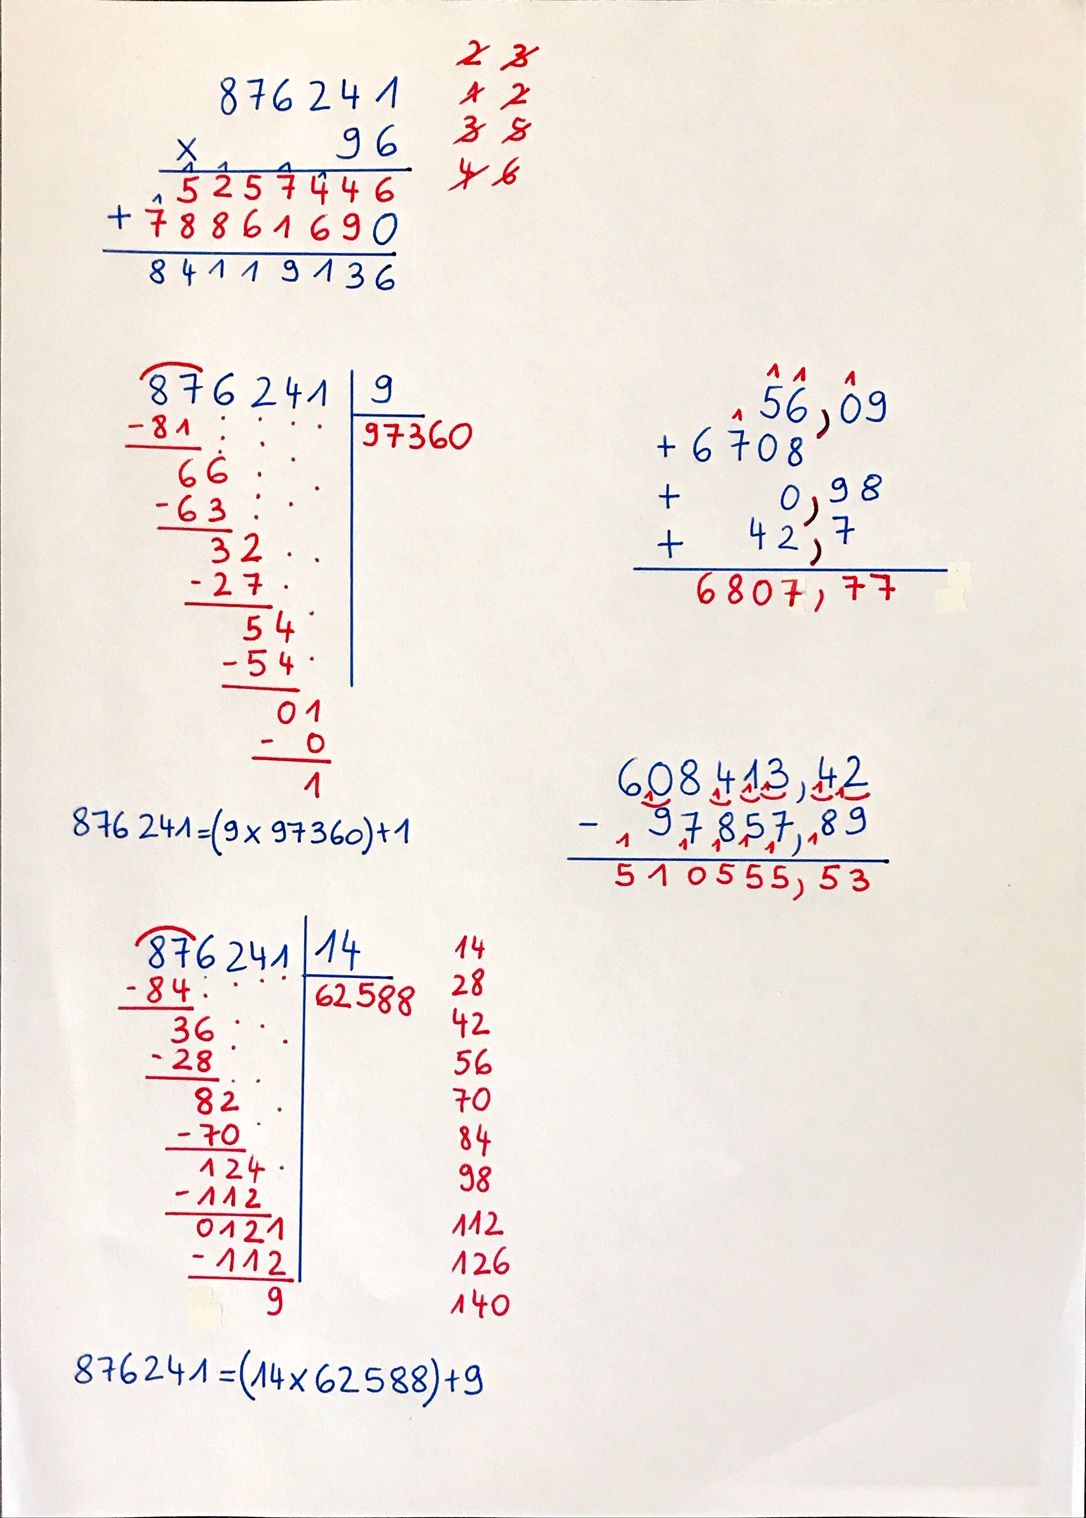 876 241
x 96
5257446
+ 78861690
84119136
2 3
1 2
3 5
4 6
876 241 | 9
-81 97360
66
-63
32
-27
54
-54
01
- 0
1
876 241=(9x97360)+1
1 1 1
56,09
1
+ 6708
+ 0,98
+ 42,7
6807,77
608413,42
- 97857,89
510555,53
876 241 | 14
-84 62588
36
-28
82
-70
124
-112
0121
-112
9
14
28
42
56
70
84
98
112
126
140
876241=(14x62588)+9